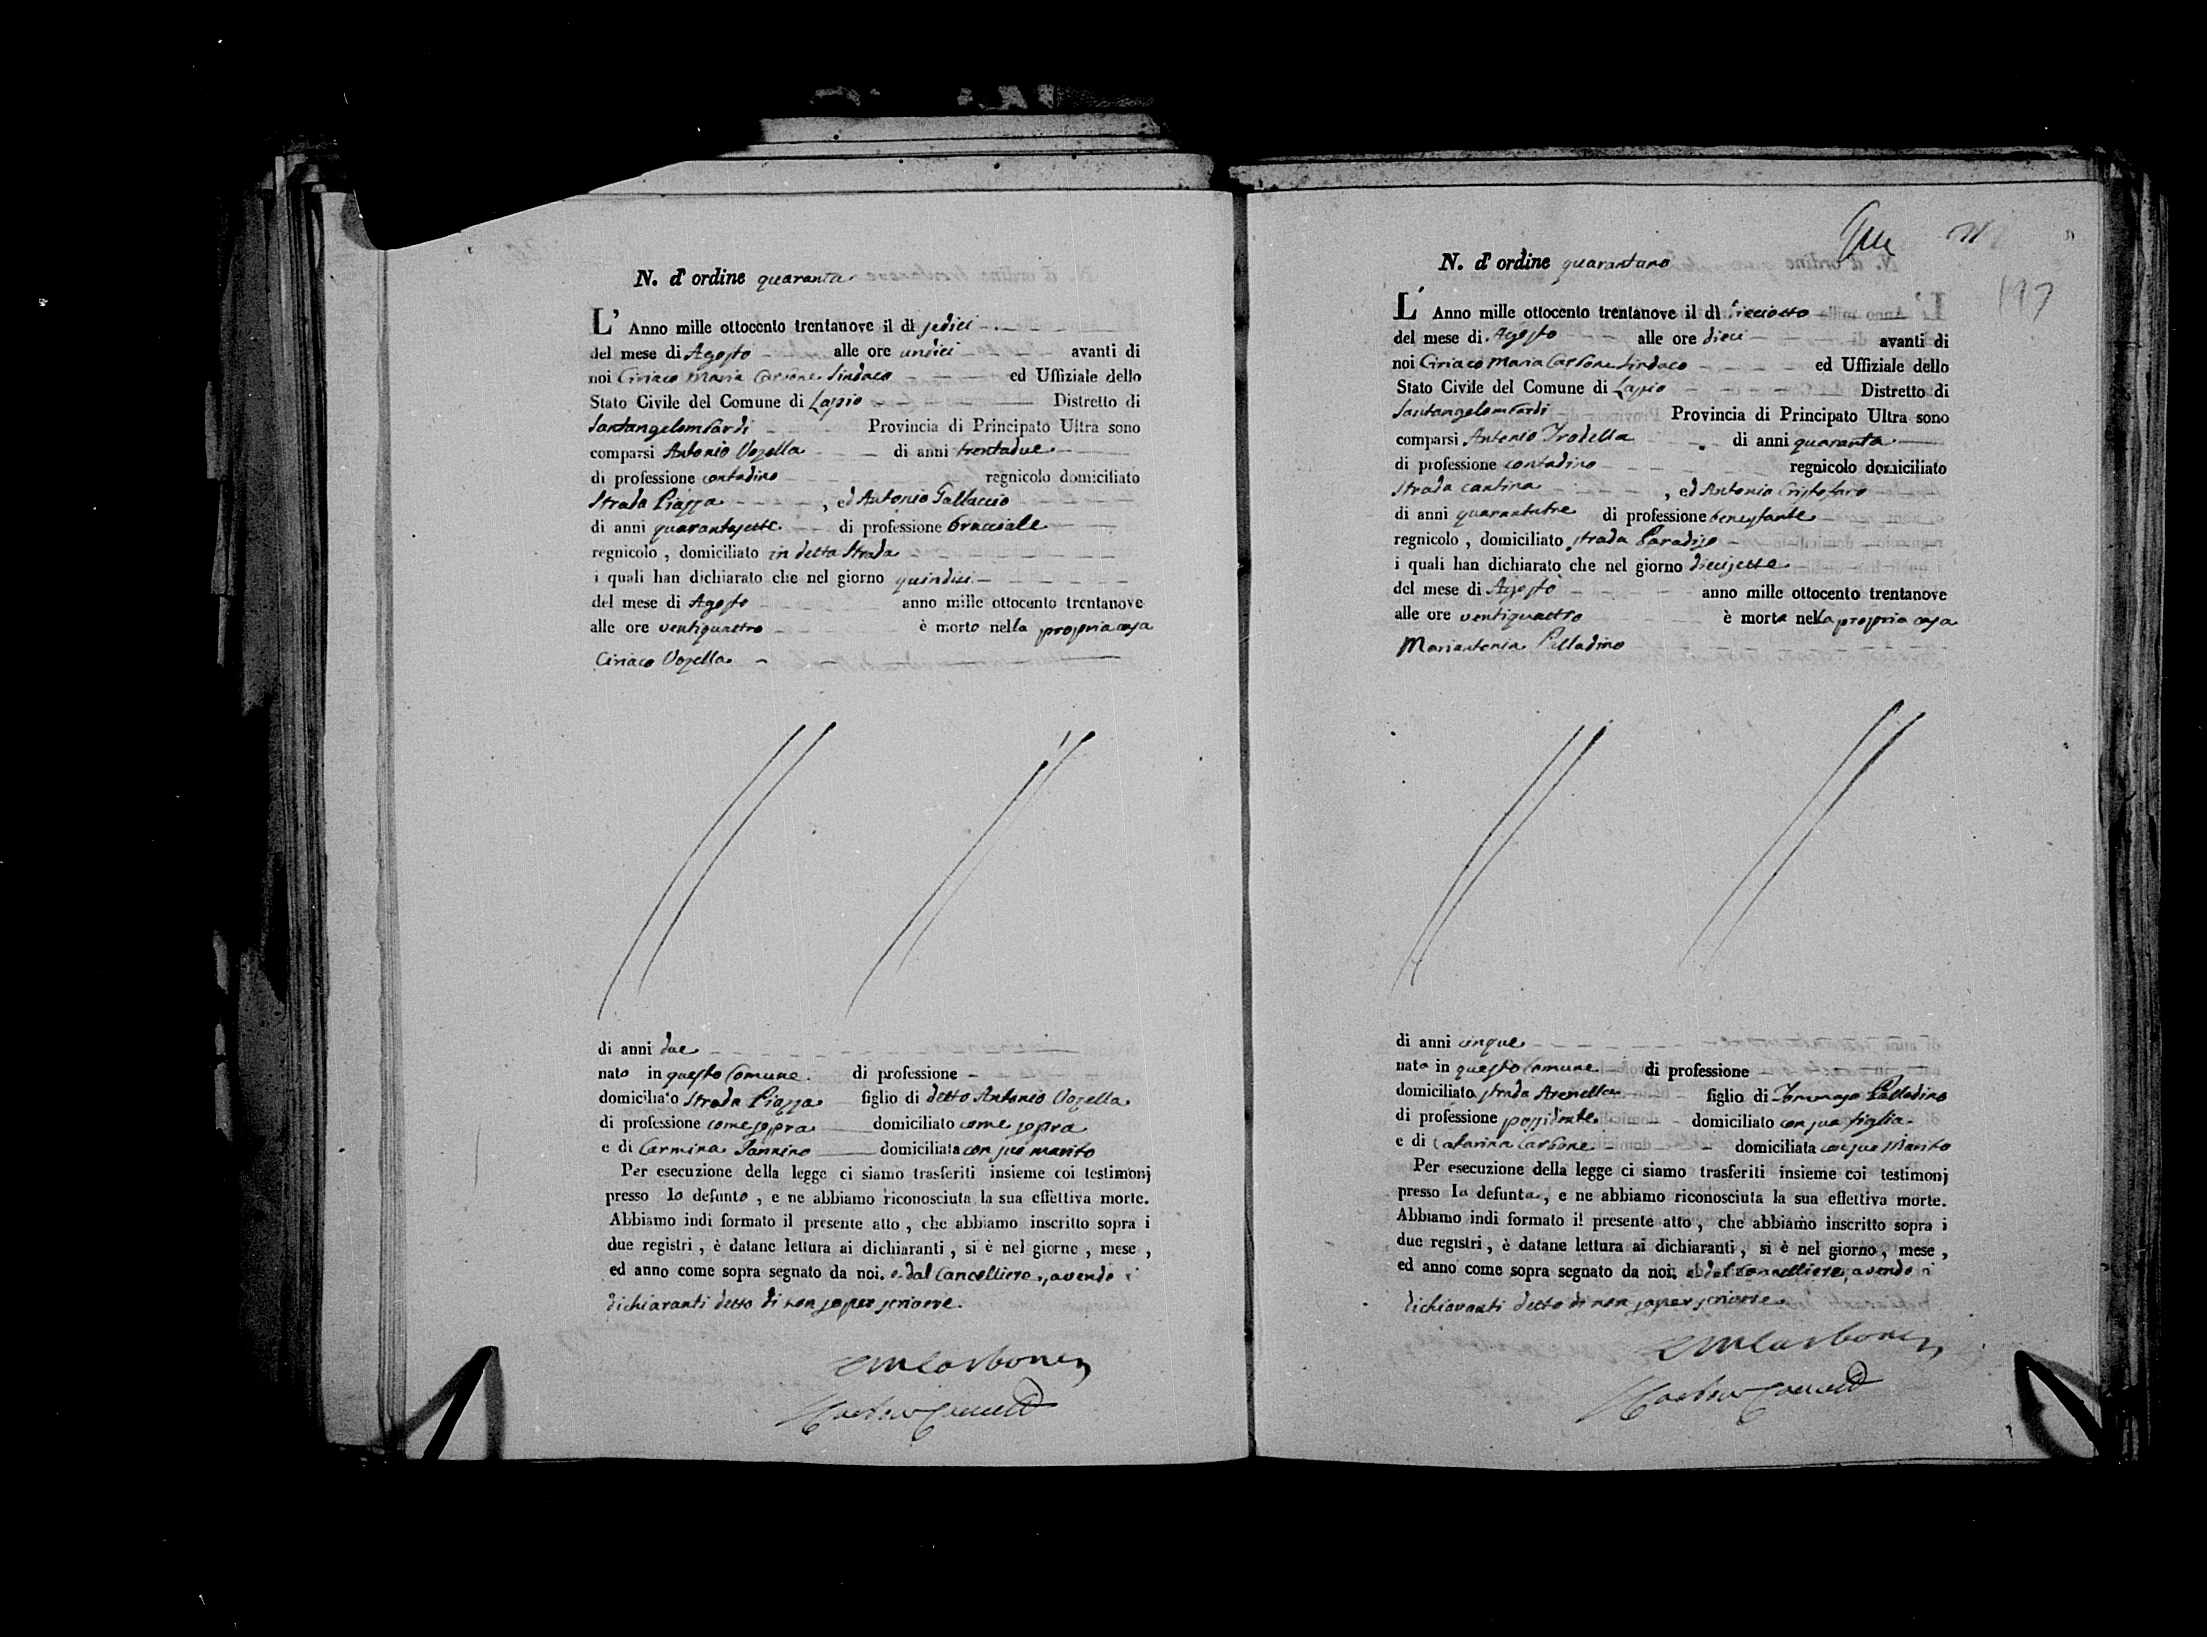 N. d' ordine quaranta
L' Anno mille ottocento trentanove il dì sedici
del mese di Agosto alle ore undici avanti di
noi Ciriaco Maria Carbone Sindaco ed Uffiziale dello
Stato Civile del Comune di Lapio Distretto di
Santangelombardi Provincia di Principato Ultra sono
comparsi Antonio Vozella di anni trentadue
di professione contadino regnicolo domiciliato
Strada Piazza , ed Antonio Gallaccio
di anni quarantasette di professione bracciale
regnicolo , domiciliato in detta Strada
i quali han dichiarato che nel giorno quindici
del mese di Agosto anno mille ottocento trentanove
alle ore ventiquattro è morto nella propria casa
Ciriaco Vozella
di anni due
nato in questo Comune di professione
domiciliato Strada Piazza figlio di detto Antonio Vozella
di professione come sopra domiciliato come sopra
e di Carmina Iannino domiciliata con suo marito
Per esecuzione della legge ci siamo trasferiti insieme coi testimonj
presso lo defunto , e ne abbiamo riconosciuta la sua effettiva morte.
Abbiamo indi formato il presente atto , che abbiamo inscritto sopra i
due registri , è datane lettura ai dichiaranti , si è nel giorno , mese ,
ed anno come sopra segnato da noi. e dal Cancelliere, avendo i
dichiaranti detto di non saper scrivere.
CMCarbone
197
N. d' ordine quarantuno
L' Anno mille ottocento trentanove il dì dieciotto
del mese di Agosto alle ore dieci avanti di
noi Ciriaco Maria Carbone Sindaco ed Uffiziale dello
Stato Civile del Comune di Lapio Distretto di
Santangelombardi Provincia di Principato Ultra sono
comparsi Antonio Trodella di anni quaranta
di professione contadino regnicolo domiciliato
Strada cantina , ed Antonio Cristofaro
di anni quarantatre di professione benestante
regnicolo , domiciliato strada Paradiso
i quali han dichiarato che nel giorno diecisette
del mese di Agosto anno mille ottocento trentanove
alle ore ventiquattro è morta nella propria casa
Mariantonia Palladino
di anni cinque
nata in questo Comune di professione
domiciliato strada Arenella figlio di Tommaso Palladino
di professione possidente domiciliato con sua figlia
e di Catarina Carbone domiciliata con suo Marito
Per esecuzione della legge ci siamo trasferiti insieme coi testimonj
presso la defunta , e ne abbiamo riconosciuta la sua effettiva morte.
Abbiamo indi formato il presente atto , che abbiamo inscritto sopra i
due registri , è datane lettura ai dichiaranti , si è nel giorno , mese ,
ed anno come sopra segnato da noi. e dal Cancelliere, avendo i
dichiaranti detto di non saper scrivere
CMCarbone